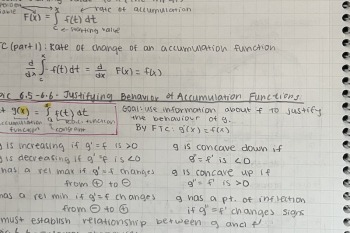 rate of accumulation
F(x) = ∫ f(t) dt
starting value
TC (part 1): Rate of change of an accumulation function
d/dx ∫ f(t) dt = d/dx F(x) = f(x)
ic 6.5-6.6 - Justifying Behavior of Accumulation Functions
g(x) = ∫ f(t) dt Goal: use information about f to justify
function constant the behaviour of g.
By FTC: g'(x) = f(x)
g is increasing if g' = f is >0 g is concave down if
g is decreasing if g' = f is <0 g" = f' is <0.
has a rel max if g' = f changes g is concave up if
from ⊕ to ⊖ g" = f' is >0
has a rel min if g' = f changes g has a pt. of inflation
from ⊖ to ⊕ if g" = f' changes signs
must establish relationship between g and f